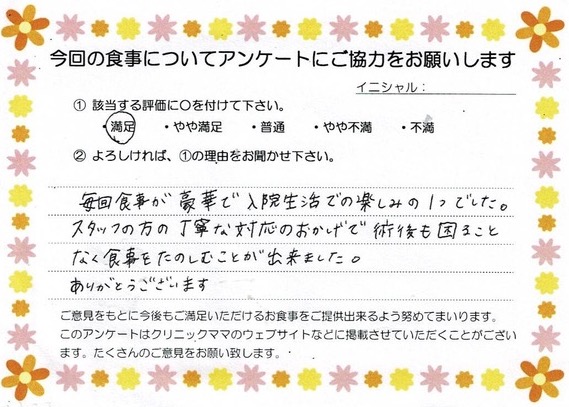 今回の食事についてアンケートにご協力をお願いします
イニシャル：
① 該当する評価に○を付けて下さい。
・満足 ・やや満足 ・普通 ・やや不満 ・不満
② よろしければ、①の理由をお聞かせ下さい。
毎回食事が豪華で入院生活での楽しみの1つでした。
スタッフの方の丁寧な対応のおかげで術後も困ること
なく食事をたのしむことが出来ました。
ありがとうございます
ご意見をもとに今後もご満足いただけるお食事をご提供出来るよう努めてまいります。
このアンケートはクリニックママのウェブサイトなどに掲載させていただくことがござい
ます。たくさんのご意見をお願い致します。